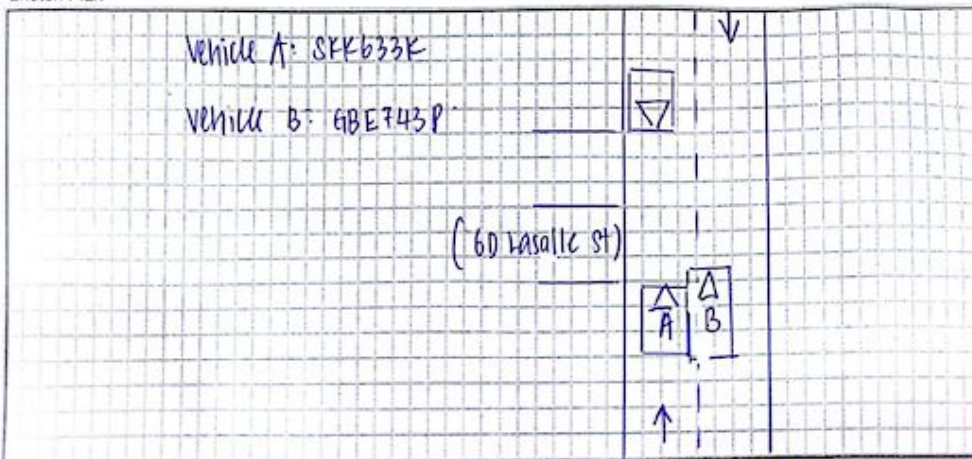 Vehicle A: SKK633K
Vehicle B: GBE743P
(6D Lasalle St)
A
B